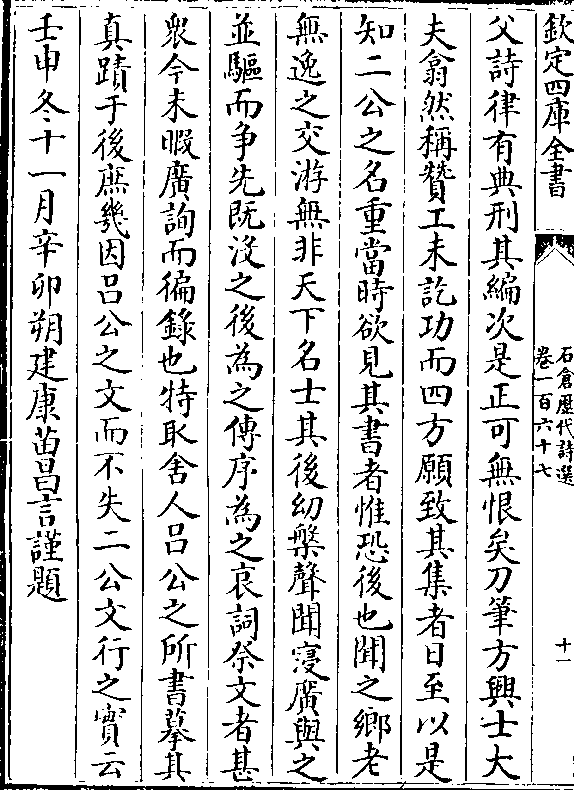 欽定四庫全書
石倉歷代詩選
卷一百六十七
十一
父詩律有典刑其編次是正可無恨矣刀筆方興士大
夫翕然稱贊工未訖功而四方願致其集者日至以是
知二公之名重當時欲見其書者惟恐後也聞之鄉老
無逸之交游無非天下名士其後幼槃聲聞寖廣與之
並驅而争先既沒之後為之傳序為之哀詞祭文者甚
衆今未暇廣詢而徧錄也特取舍人吕公之所書摹其
真蹟于後庶幾因吕公之文而不失二公文行之實云
壬申冬十一月辛卯朔建康苗昌言謹題